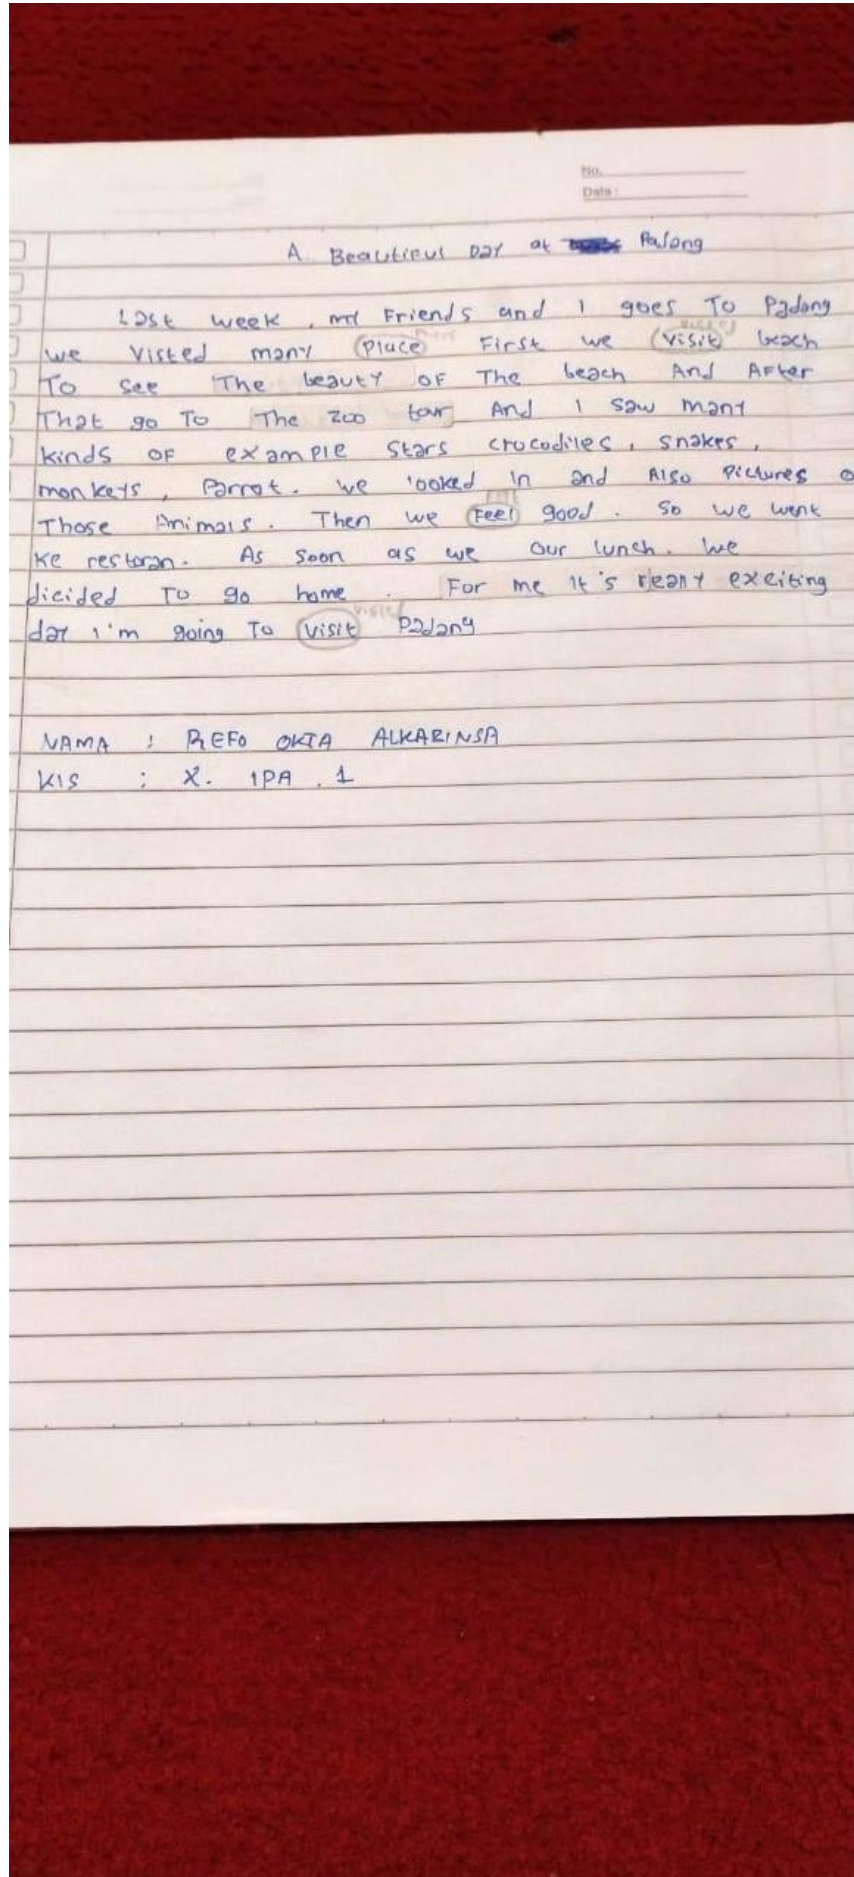 No.
Date :
A Beautieul Day at Palang
Last week , my Friends and I goes To Padang
we Visted many place First we visit beach
To see The beauty OF The beach And AFter
That go To The zoo tour And I saw many
kinds OF example stars crocodiles, snakes,
monkeys, Parrot. we looked in and Also Pictures o
Those Animals. Then we Feel good. So we went
Ke restoran. As soon as we our lunch. we
dicided To go home . For me It's reany exciting
day I'm going To visit Padang
NAMA : REFO OKTA ALKARINSA
KlS : X. IPA . 1